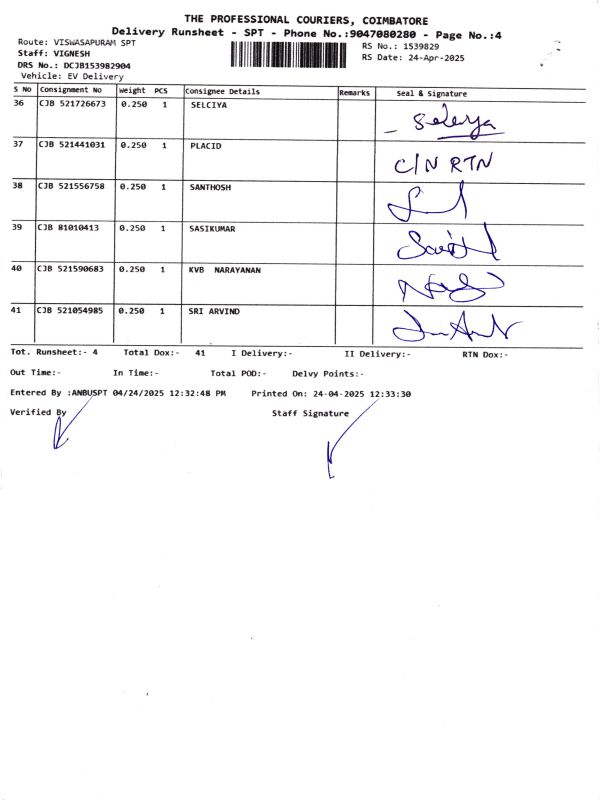 THE PROFESSIONAL COURIERS, COIMBATORE
Delivery Runsheet - SPT - Phone No.:9047080280 - Page No.:4
Route: VISWASAPURAM SPT
RS No.: 1539829
Staff: VIGNESH
RS Date: 24-Apr-2025
DRS No.: DCJB153982904
Vehicle: EV Delivery
S No Consignment No Weight PCS Consignee Details Remarks Seal & Signature
36 CJB 521726673 0.250 1 SELCIYA
37 CJB 521441031 0.250 1 PLACID C/N RTN
38 CJB 521556758 0.250 1 SANTHOSH
39 CJB 81010413 0.250 1 SASIKUMAR
40 CJB 521590683 0.250 1 KVB NARAYANAN
41 CJB 521054985 0.250 1 SRI ARVIND
Tot. Runsheet:- 4 Total Dox:- 41 I Delivery:- II Delivery:- RTN Dox:-
Out Time:- In Time:- Total POD:- Delvy Points:-
Entered By :ANBUSPT 04/24/2025 12:32:48 PM Printed On: 24-04-2025 12:33:30
Verified By Staff Signature